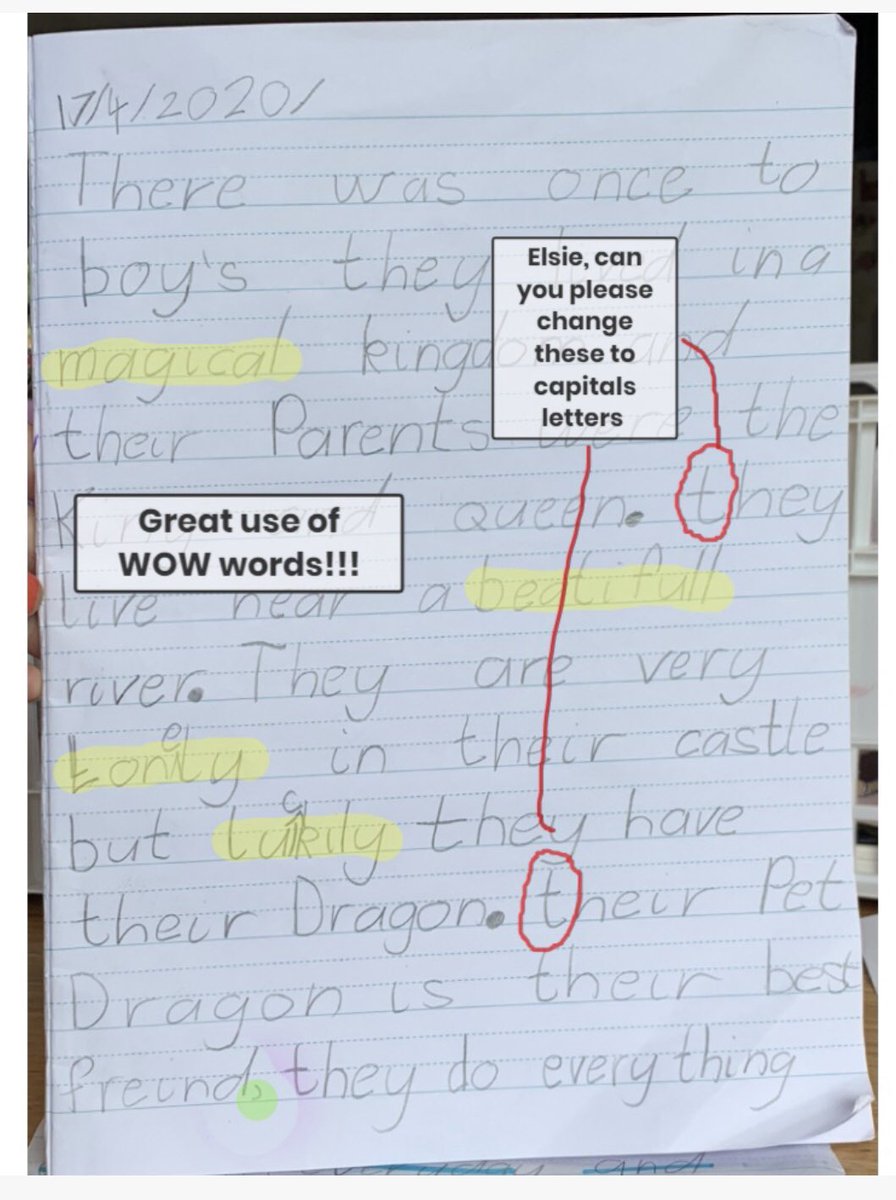 17/4/2020/
There was once to
boy's they in a
magical kingdom and
their Parents were the
King and queen. they
live near a beatifull
river. They are very
Lonely in their castle
but luckily they have
their Dragon. their Pet
Dragon is their best
freind, they do everything
and
Elsie, can
you please
change
these to
capitals
letters
Great use of
WOW words!!!